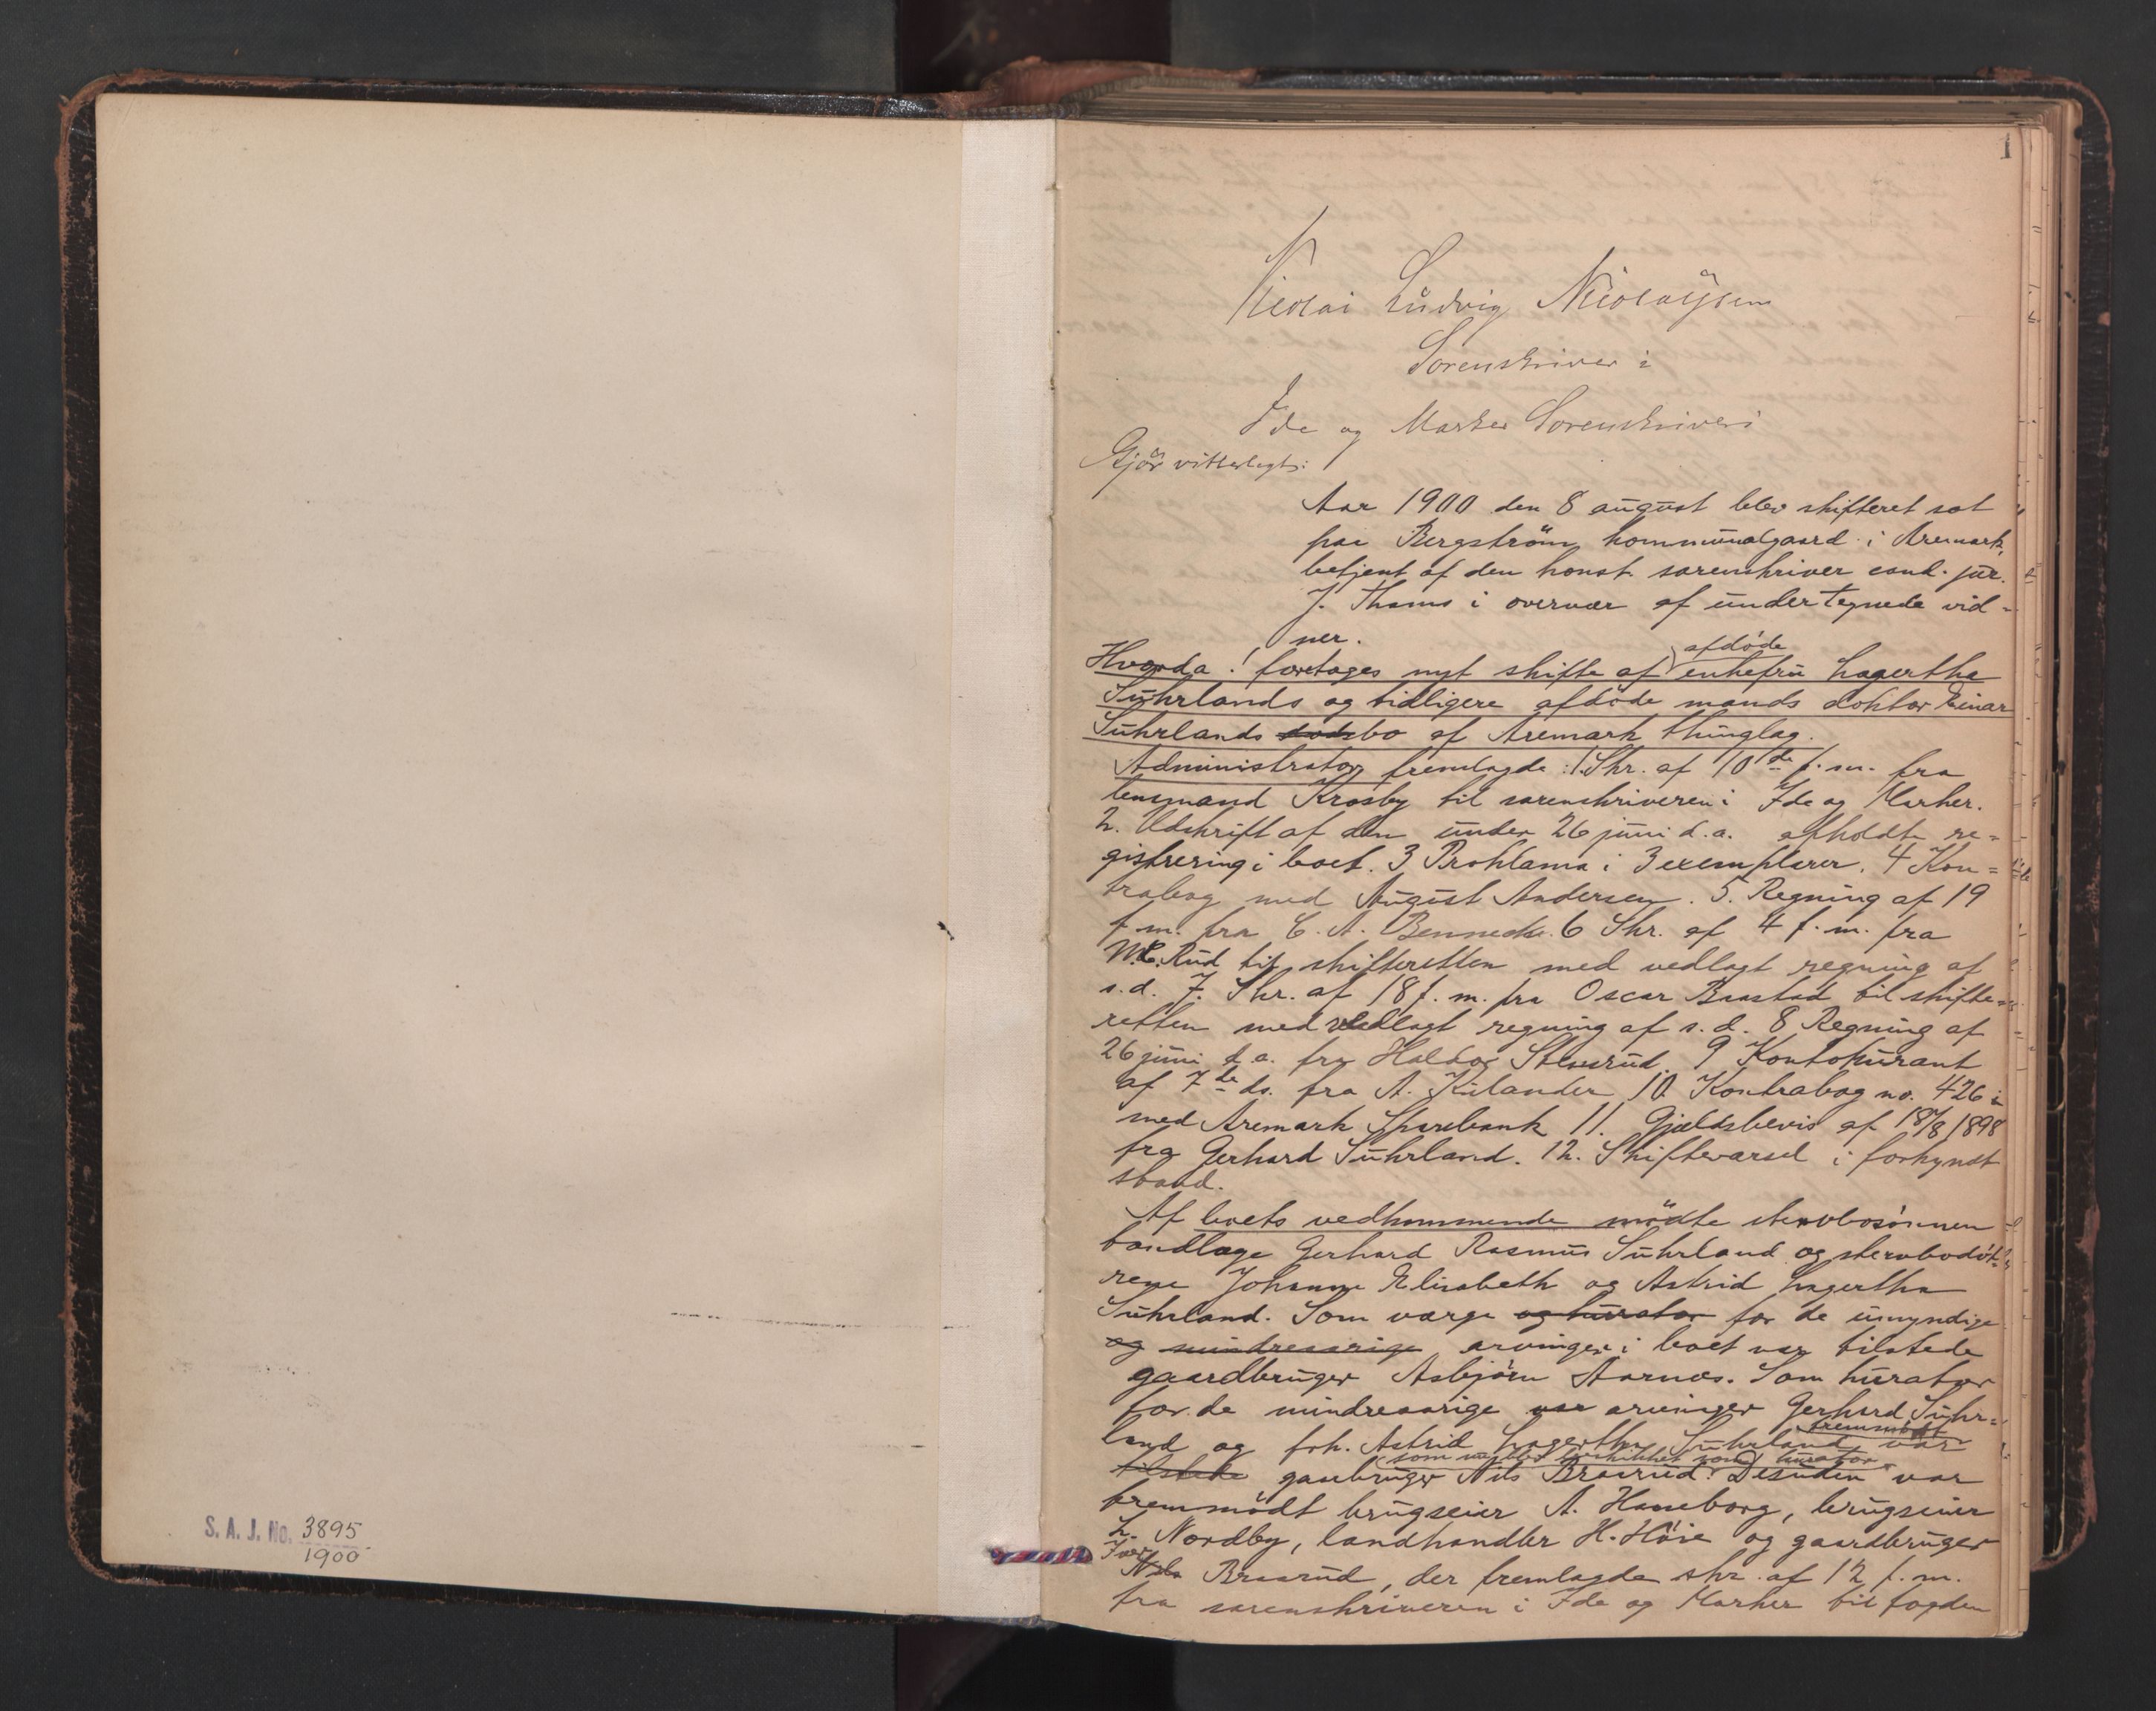 S. A. J. No. 3895
1900
1
Nicolai Ludvig Nicolaysen
Sorenskriver i
Ide og Marker Sorenskriveri
Gjør vitterligt:
Aar 1900 den 8 august blev skifteret sat
paa Bergström kommunalgaard i Aremark,
betjent af den konst. sorenskriver cand. jur.
J. Thams i overvær af undertegnede vid-
ner.
afdöde
Hvorda: foretages nyt skifte af enkefru Lagertha
Suhrlands og tidligere afdöde mands doktor Einar
Suhrlands bo af Aremark thinglag.
Administrator fremlagde: 1. Skr. af 10de f.m. fra
lensmand Krosby til sorenskriveren i Ide og Marker.
2. Udskrift af den under 26 juni d.a. afholdte re-
gistrering i boet. 3 Proklama i 3 exemplarer. 4 Kon-
trabog med August Andersen. 5. Regning af 19
f.m. fra C. A. Bennecke. 6 Skr. af 4 f.m. fra
M.C. Rud til skifteretten med vedlagt regning af
s.d. 7. Skr. af 18 f.m. fra Oscar Baastad til skifte-
retten med vedlagt regning af s.d. 8 Regning af
26 juni d.a. fra Halvor Stensrud. 9 Kontokurant
af 7de ds. fra A. Kilander 10. Kontrabog no. 426
med Aremark Sparebank 11. Gjældsbevis af 18/8 1898
fra Gerhard Suhrland. 12. Skiftevarsel i forkyndt
stand.
Af boets vedkommende mödte stervbosönnen
tandlæge Gerhard Rasmus Suhrland og stervbodöt-
rene Johanne Elisabeth og Astrid Lagertha
Suhrland. Som værge og kurator for de umyndige
og mindreaarige arvinger i boet var tilstede
gaardbruger Asbjörn Aarnæs. Som kurator
for de mindreaarige var arvinger Gerhard Suhr-
fremmödt
land og frk. Astrid Lagertha Suhrland var
som kurator
tilstede gaarbruger Nils Braarud. Desuden var
fremmödt brugseier A. Haneborg, brugseier
L. Nordby, landhandler H. Höie og gaardbruger
Iver
Nils Braarud, der fremlagde skr. af 12 f.m.
fra sorenskriveren i Ide og Marker til fogden